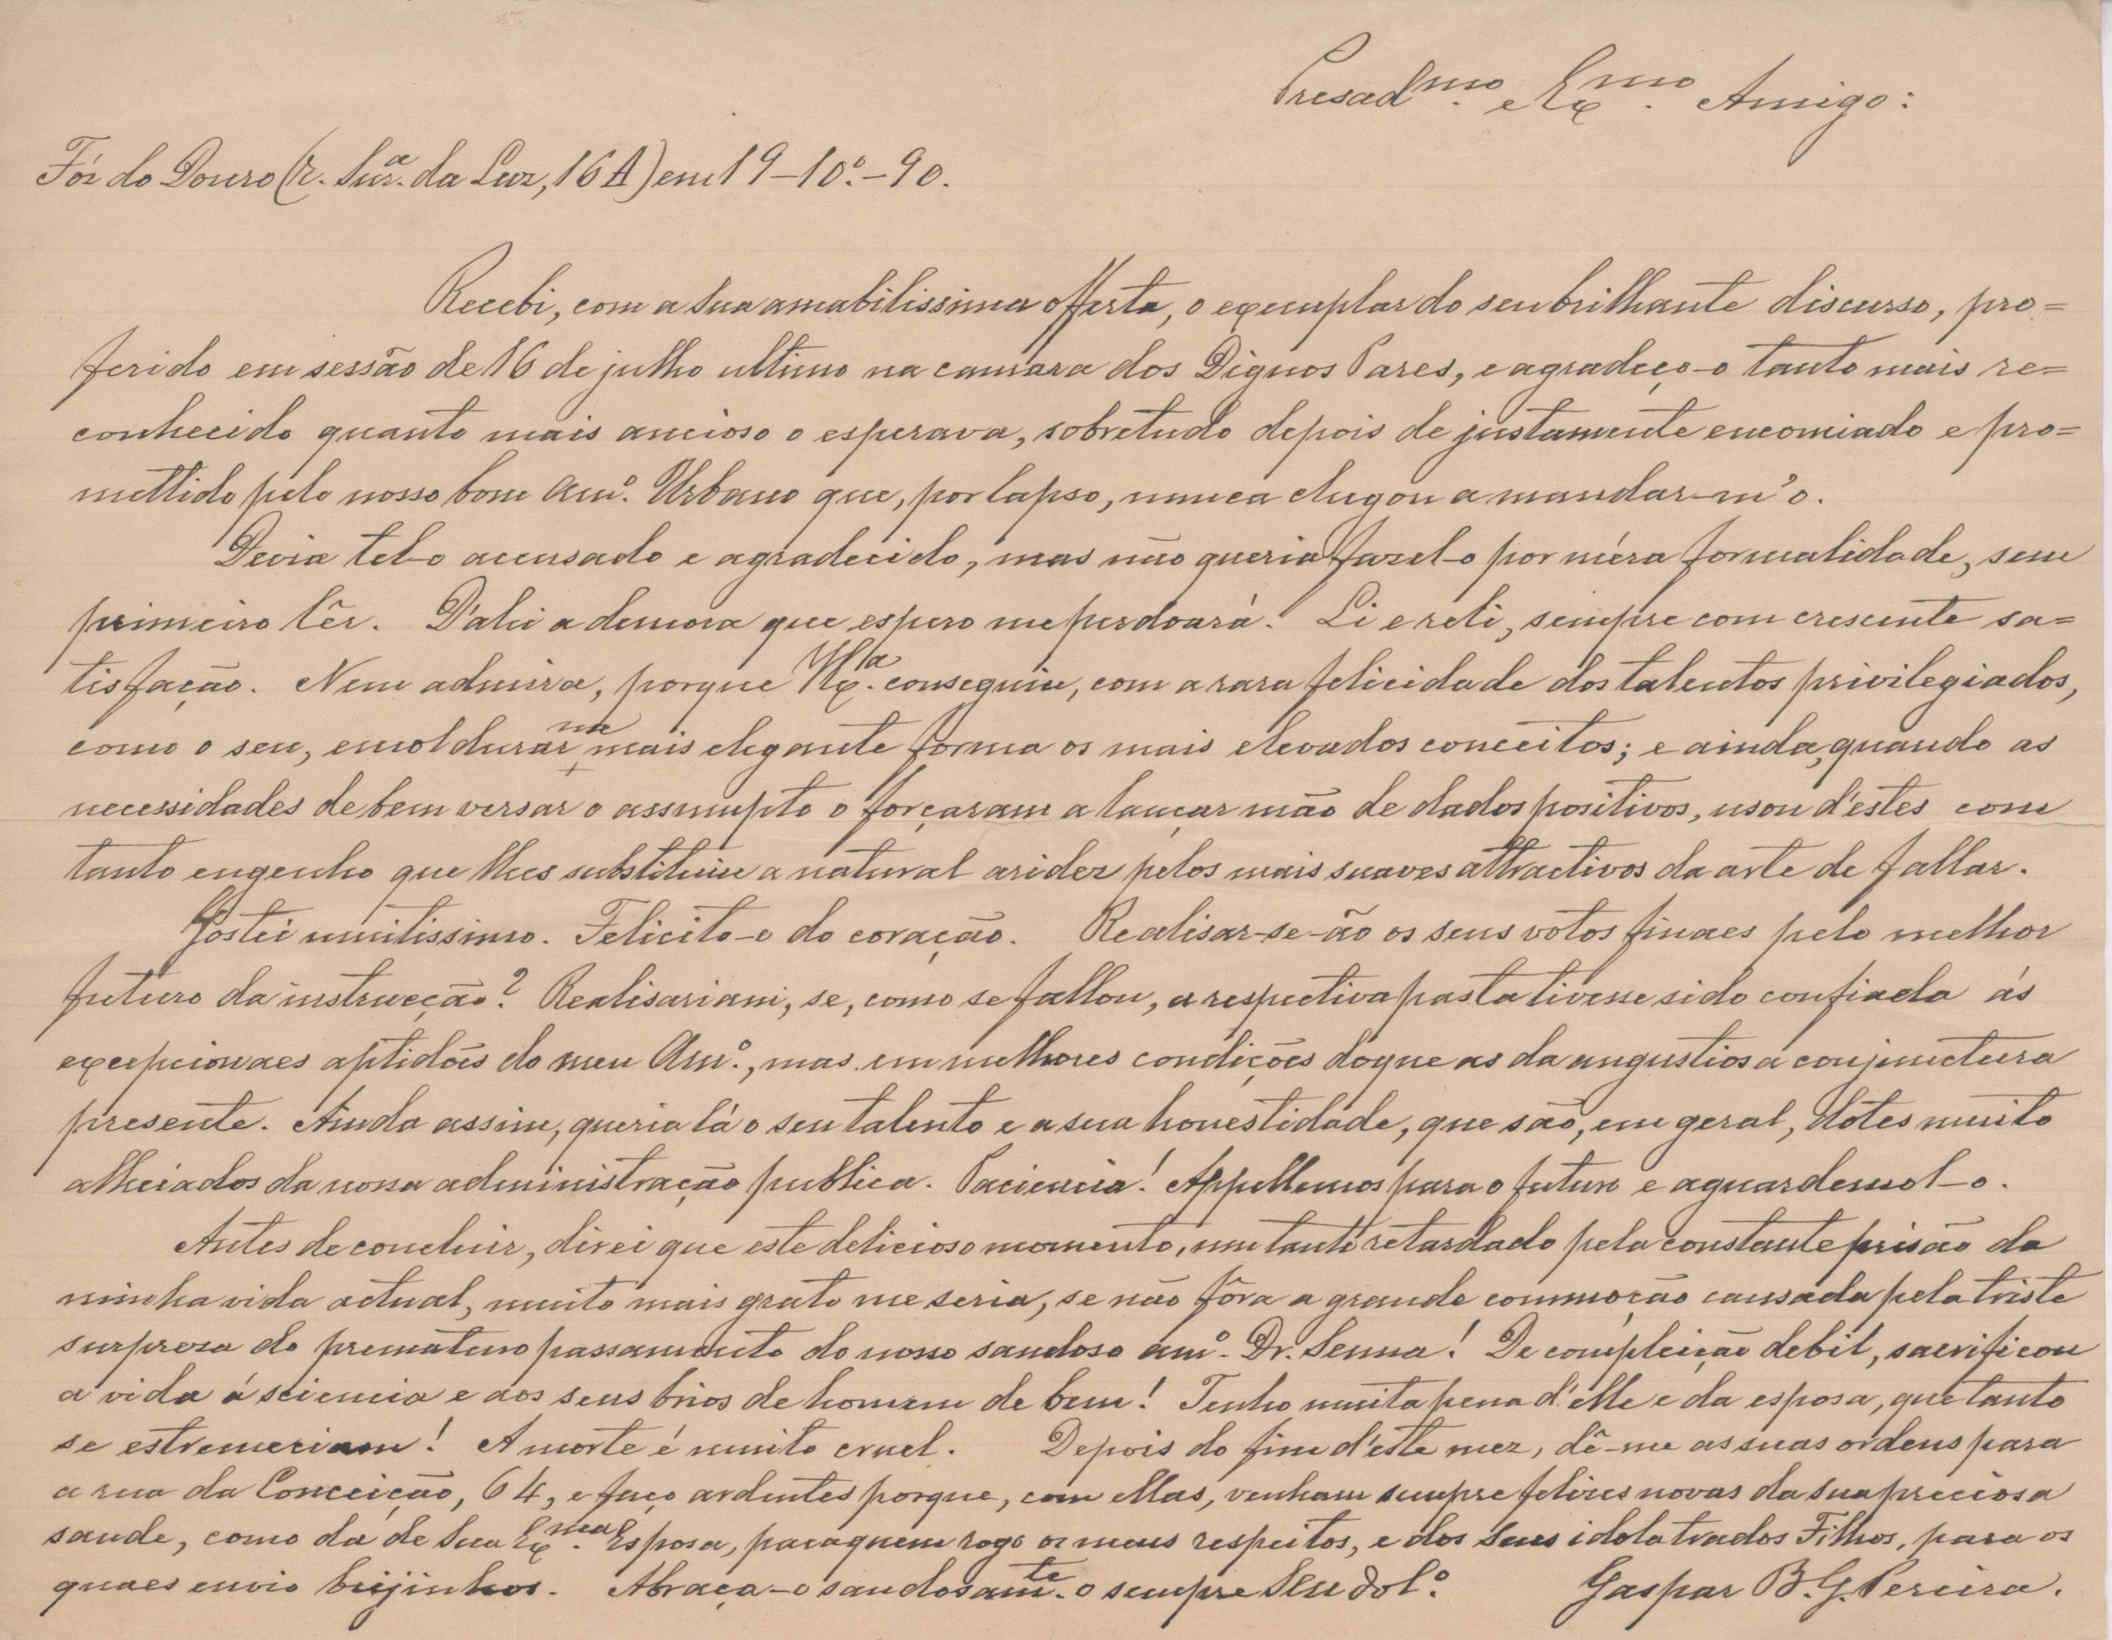 Presad.mo e Ex.mo Amigo:
Fóz do Douro (r. Snr.a da Luz, 16 A) em 19-10.o-90.
Recebi, com a sua amabilissima offerta, o exemplar do seu brilhante discurso, pro=
ferido em sessão de 16 de julho ultimo na camara dos Dignos Pares, e agradeço-o tanto mais re=
conhecido quanto mais ancioso o esperava, sobretudo depois de justamente encomiado e pro=
mettido pelo nosso bom Am.o Urbano que, por lapso, nunca chegou a mandar-m'o.
Devia tel-o accusado e agradecido, mas não queria fazel-o por méra formalidade, sem
primeiro lêr. D'ahi a demora que espero me perdoará. Li e reli, sempre com crescente sa=
tisfação. Nem admira, porque V. Ex.a conseguiu, com a rara felicidade dos talentos privilegiados,
como o seu, emoldurar na mais elegante forma os mais elevados conceitos; e ainda, quando as
necessidades de bem versar o assumpto o forçaram a lançar mão de dados positivos, usou d'estes com
tanto engenho que lhes substituiu a natural aridez pelos mais suaves attractivos da arte de fallar.
Gostei muitissimo. Felicito-o do coração. Realisar-se-ão os seus votos finaes pelo melhor
futuro da instrucção? Realisariam, se, como se fallou, a respectiva pasta tivesse sido confiada ás
excepcionaes aptidões do meu Am.o, mas em melhores condições do que as da angustiosa conjunctura
presente. Ainda assim, queria lá o seu talento e a sua honestidade, que são, em geral, dotes muito
alheiados da nossa administração publica. Paciencia! Appellemos para o futuro e aguardemol-o.
Antes de concluir, direi que este delicioso momento, um tanto retardado pela constante prisão da
minha vida actual, muito mais grato me seria, se não fôra a grande commoção causada pela triste
surpreza do prematuro passamento do nosso saudoso am.o Dr. Senna! De compleição debil, sacrificou
a vida á sciencia e aos seus brios de homem de bem! Tenho muita pena d'elle e da esposa, que tanto
se estremeciam! A morte é muito cruel. Depois do fim d'este mez, dê-me as suas ordens para
a rua da Conceição, 64, e faço ardentes porque, com ellas, venham sempre felizes novas da sua preciosa
saude, como da de Sua Ex.ma Esposa, para quem rogo os meus respeitos, e dos seus idolatrados Filhos, para os
quaes envio beijinhos. Abraça-o saudosam.te o sempre Seu
Gaspar B. G. Pereira.